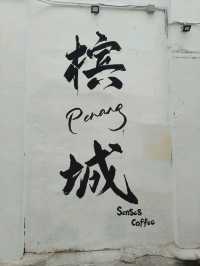 槟
Penang
城
Senses
Coffee